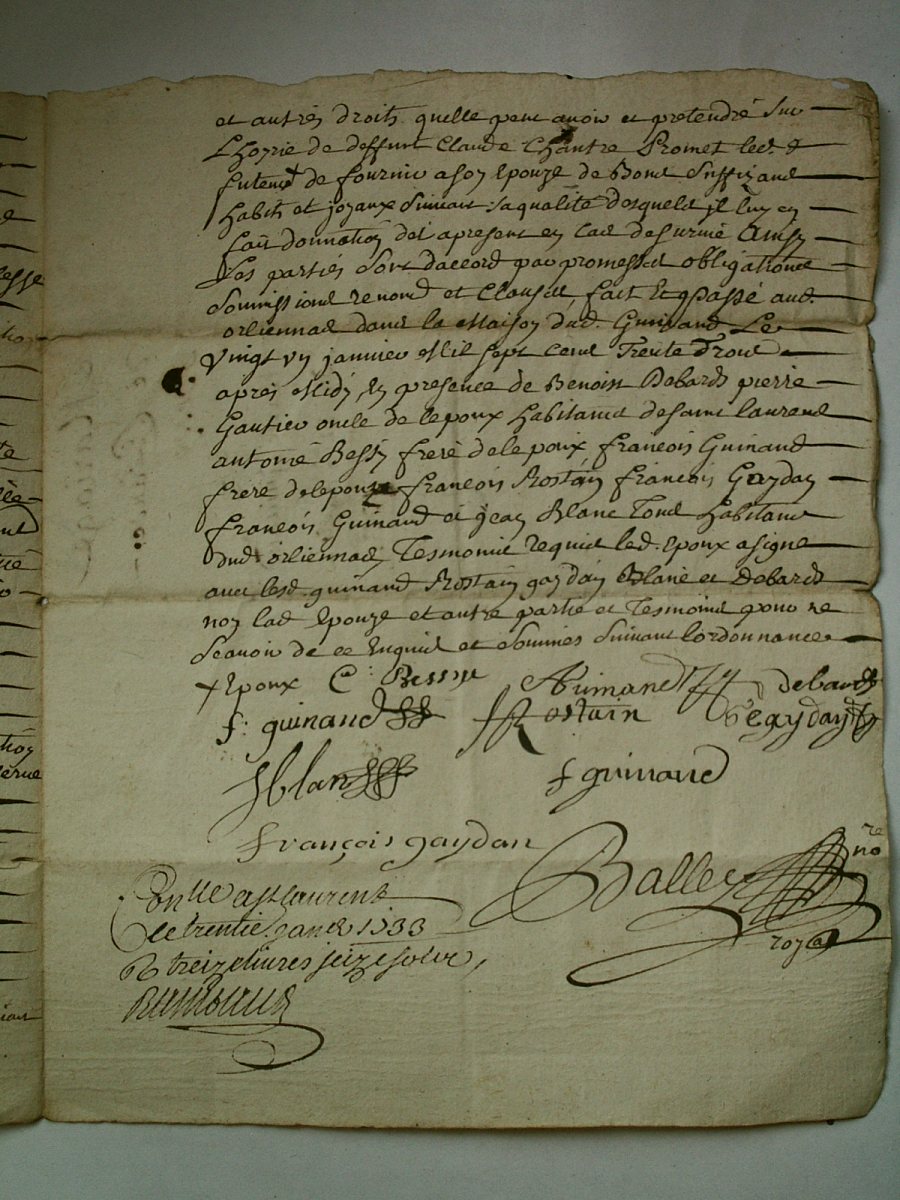 et autres droits quelle peut avoir et pretendre sur
Lhoyrie de deffunt Claude Chantre Promet led. &
futeur de fournir a son Epouze de Bond suffizand
habits et joyaux suivant sa qualite desquels il luy en
fait donnation des apresent en cas de survie Ainsy
Les parties sont daccord par promesses obligations
soumissions renond et Clauses, fait Et passé aud.
orliennas dans la Maison dud. Guinand Le
vingt un janvier Mil sept cend Trente Trois
apres Midy En presence de Benoist Debards pierre
Gautier oncle de lepoux habitands de saint laurend
antoine Bessy frere de lepoux francois Guinand
frere delepouze francois Rostain francois Gaydan
francois Guinand et jean Blanc Tous habitans
dud orliennas Tesmoins requis led. Epoux a signé
avec lesd. guinand Rostain gaydan Blanc et Debards
non lad Epouze et autre partie et Tesmoins pour ne
scavoir de ce Enquis et sommés suivant lordonnance
+ Epoux C Bessye Guinand debards
f. guinand Rostain gaydan
J blan f guinand
françois gaydan
Balley no re
royal
Conlle a st laurent
le trentie janer 1733
R treize livres seize solz